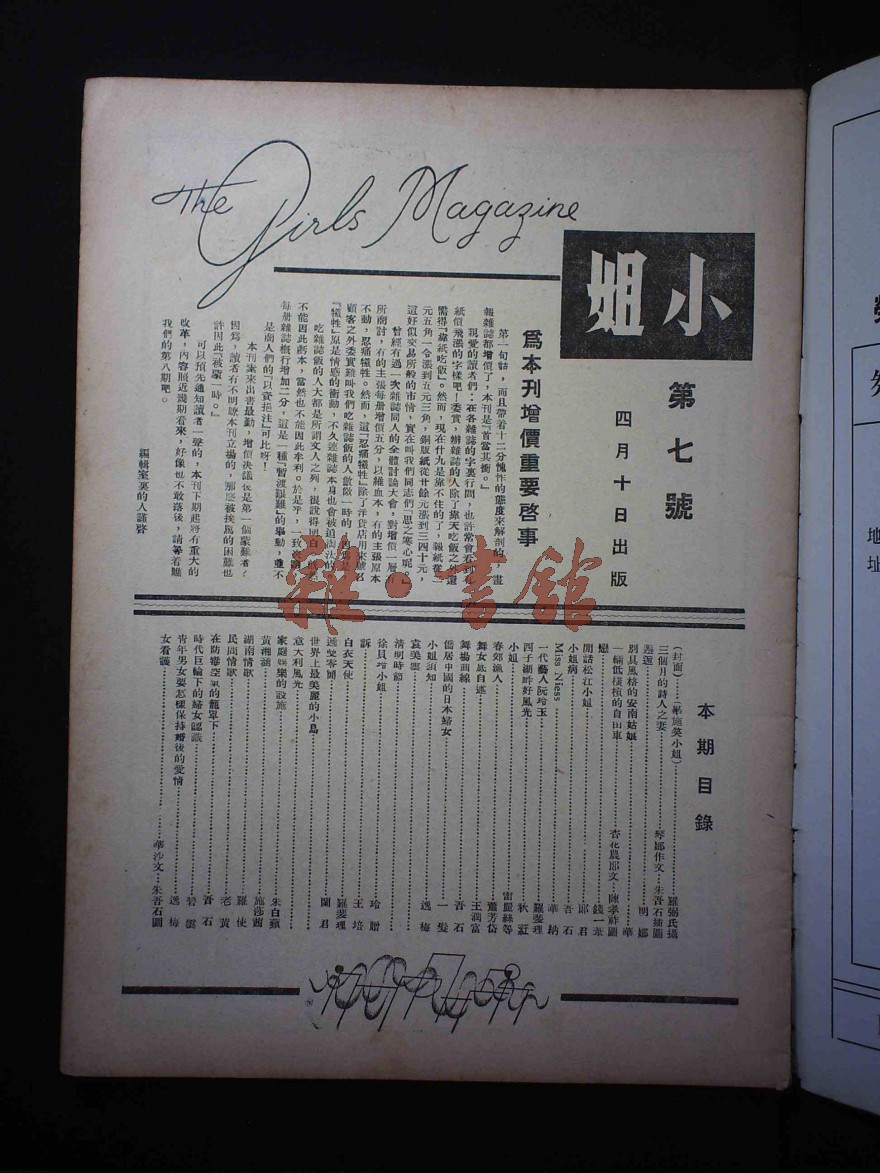 The Girls Magazine
小姐
第七號
四月十日出版
爲本刊增價重要啓事
第一句話，而且帶着十二分愧怍的態度來解剖的，畫
報雜誌都增價了，本刊是『首當其衝。』
親愛的讀者們：在各雜誌的字裏行間，也許常會看到
紙價飛漲的字樣吧！委實，辦雜誌的人除了靠天吃飯之外還
需得『靠紙吃飯』。然而，現在什九是靠不住的了，報紙從二
元五角一令漲到五元三角，銅版紙從廿餘元漲到三四十元，
這好似交易所般的市情，實在叫我們同志們『思之寒心呢。』
曾經有過一次雜誌同人的全體討論大會，對增價一層有
所商討，有的主張每册增價五分，以維血本，有的主張原本
不動，忍痛犧牲。然而，這『忍痛犧牲』除了洋貨店用來號召
顧客之外委實難叫我們吃雜誌飯的人數敵一時的，因爲
『犧牲』原是情感的衝動，不久連雜誌本身也會被迫淘汰的。
吃雜誌飯的人大都是所謂文人之列，很說得明白，旣然
不能因此虧本，當然也不能因此牟利。於是乎，一致
每册雜誌概行增加二分，這是一種『暫渡艱難』的舉動，並不
是商人們的『以資挹注』可比呀！
本刊素來出書最勤，增價决議後是第一個蒙難者；
因爲，讀者有不明瞭本刊立塲的，那麽被挨罵的困難也
許因此『被蒙一時。』
可以預先通知讀者一聲的，本刊下期起將有重大的
改革，內容照近幾期看來，好像也不敢落後，請等着瞧
我們的第八期吧。
編輯室裏的人謹啓
本期目錄
（封面）……（畢施笑小姐）……羅弼氏攝
三個月的詩人之妻……琴娜作文・朱吾石插圖
邂逅……明娜
別具風格的安南姑娘……華
一輛低檔槓的自由車……杏花農郎文・陳孝祥圖
戀……錢一葦
閒話松江小姐……郎君
小姐病……吾石
Miss Niess……華納
一代藝人阮玲玉……羅斐理
四子湖畔好風光……秋莊
小姐……雷麗絲等
春郊漁人……蕭芳岱
舞女底自述……王潤富
舞場曲線……吾石
僑居中國的日本婦女……一髮
小姐須知……逸梅
袁美雲……
清明時節……
徐貝玲小姐……玲贈
訴……王培
白衣天使……羅斐理
避愛寄簡……蘭君
世界上最美麗的小島……
意大利風光……
家庭娛樂的設施……朱白蘋
黄湘涵……施莎茜
湖南情歌……羅使
民間情歌……老黄
在防毒空氣的籠罩下……吾石
時代巨輪下的婦女認識……碧雲
青年男女要怎樣保持婚後的愛情……逸梅
女看護……華沙文・朱吾石圖
雜・書館